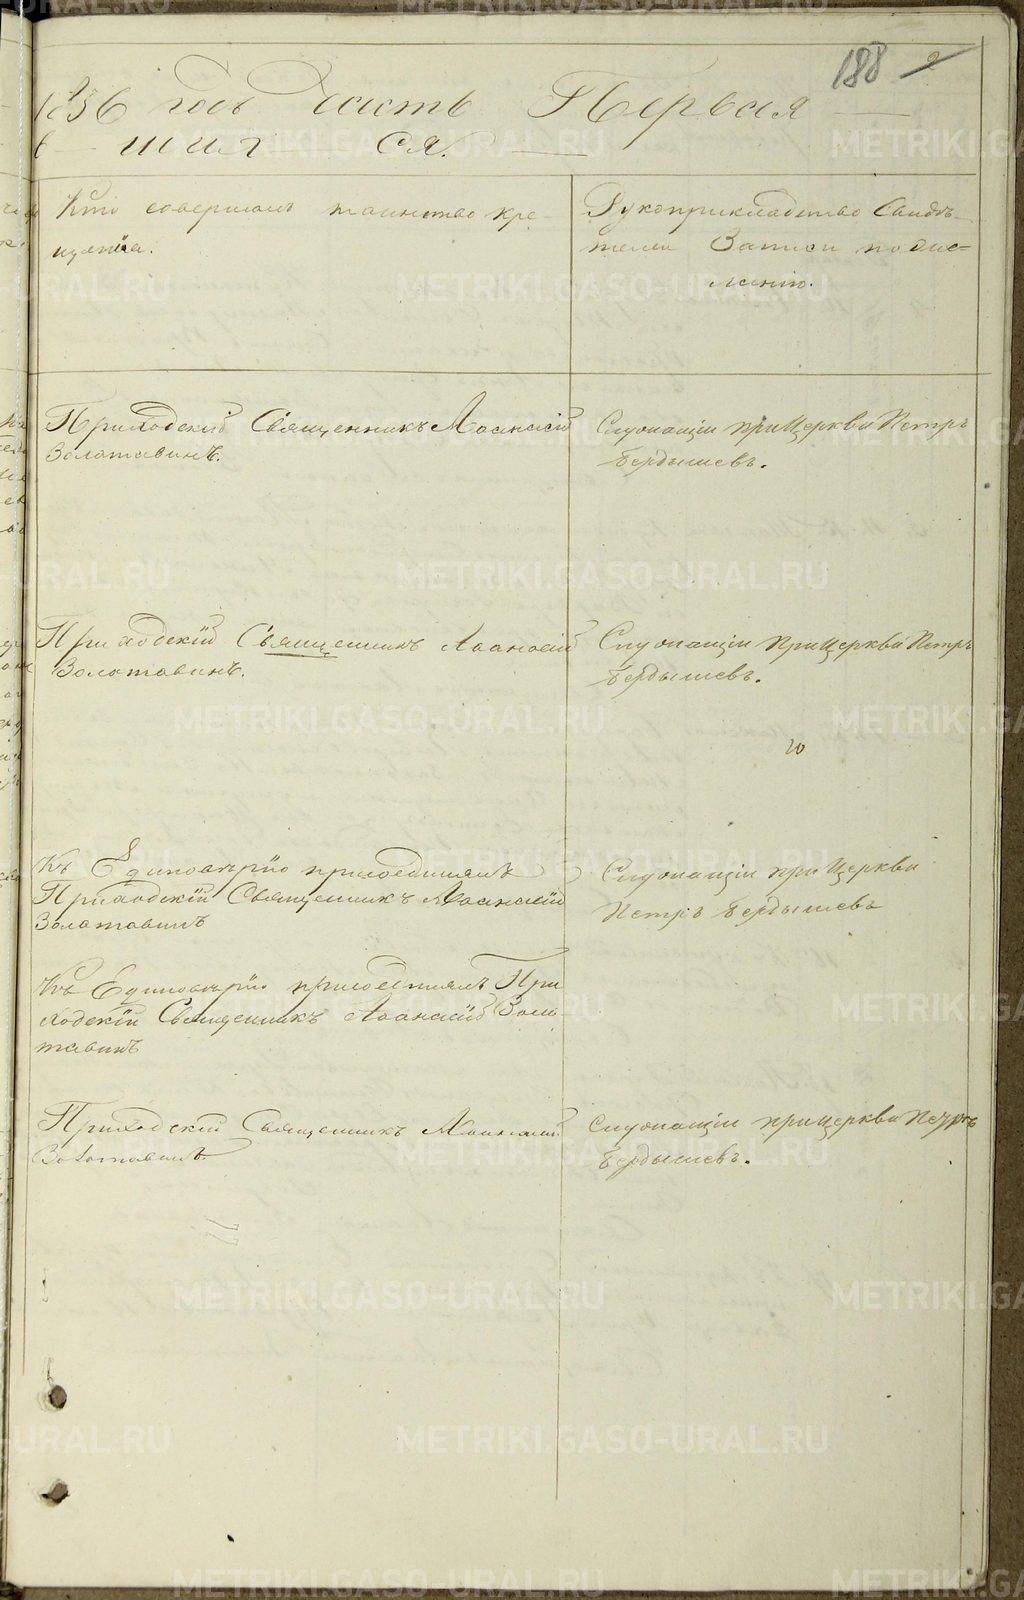 188 2
1856 годъ Часть Первая
шихся.
Кто совершалъ таинство кре-
щенія.
Рукоприкладство Свидѣ-
телей Записи по же-
ланію.
Приходскій Священникъ Аѳанасій
Золотавинъ.
Служащіи при Церкви Петръ
Бердышевъ.
Приходскій Священникъ Аѳанасій
Золотавинъ.
Служащіи при Церкви Петръ
Бердышевъ.
Къ Единовѣрію присоединялъ
Приходскій Священникъ Аѳанасій
Золотавинъ
Служащіи при Церкви
Петръ Бердышевъ
Къ Единовѣрію присоединялъ При
ходскій Священникъ Аѳанасій Золо-
тавинъ
Приходскій Священникъ Аѳанасій
Золотавинъ.
Служащіи при Церкви Петръ
Бердышевъ.
METRIKI.GASO-URAL.RU